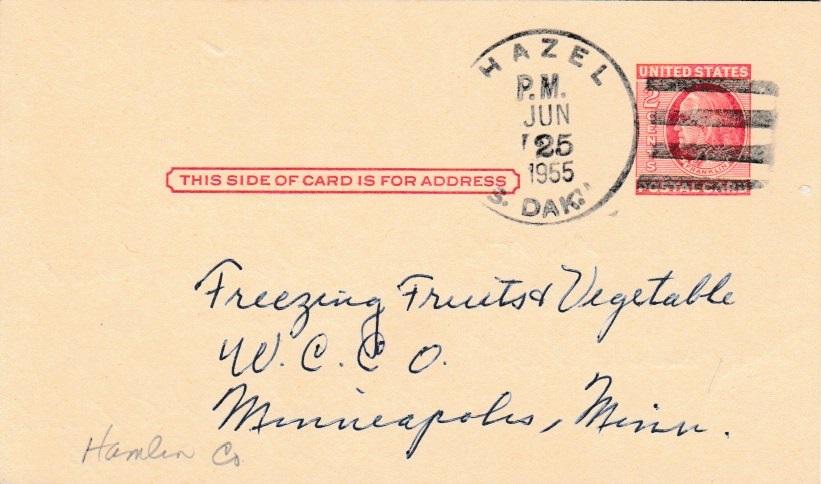 HAZEL
P.M.
JUN
25
1955
S. DAK.
UNITED STATES
2 CENTS
FRANKLIN
POSTAL CARD
THIS SIDE OF CARD IS FOR ADDRESS
Freezing Fruits & Vegetable
W.C.C.O.
Minneapolis, Minn.
Hamlin Co